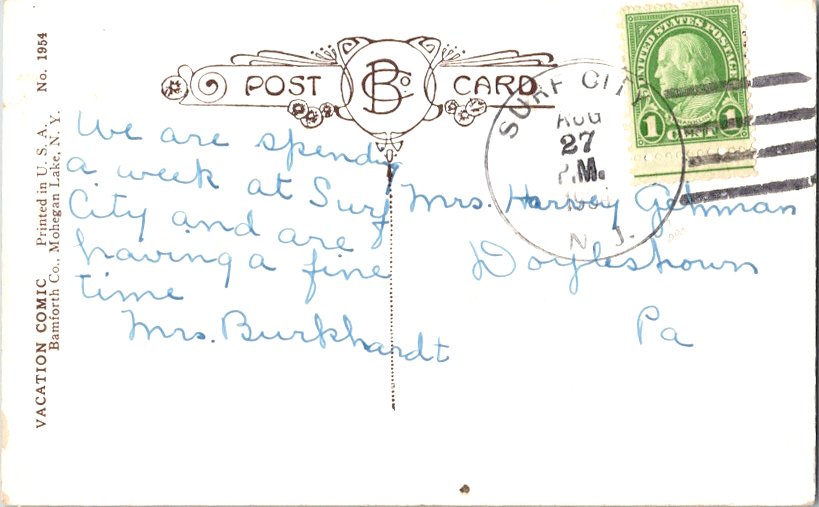 VACATION COMIC Printed in U. S. A. No. 1954
Bamforth Co., Mohegan Lake, N. Y.
POST BCo. CARD
UNITED STATES POSTAGE
1 1
SURF CITY
AUG
27
P.M.
N. J.
We are spending
a week at Surf
City and are
having a fine
time
Mrs. Burkhardt
Mrs. Harvey Gehman
Doylestown
Pa